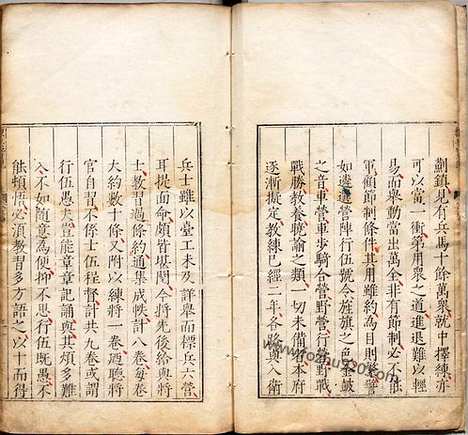 薊鎮見有兵馬十餘萬衆就中擇練亦
可以當一衝第用衆之道進退難以輕
易而舉動當出萬全非有節制必不能
軍顧節制條件其用雖約為目則夥
如遴選營陣行伍號令旌旗之色金鼓
之音車營車步騎合營野營行營野戰
戰勝教養曉諭之類一切未備該本府
逐漸擬定教練已經二年各將與入衛
兵士雖以臺工未及詳舉而標兵六營
耳提面命頗皆堪閱今將先後給與將
士教習過條約通集成帙計八卷每卷
大約數十條又附以練將一卷酒聴將
官自習不令士伍程督計共九卷或謂
行伍愚夫豈能章章記誦與其煩多難
入不如隨意為便抑不思行伍既愚不
能頓悟必須教習多方語之以十而得